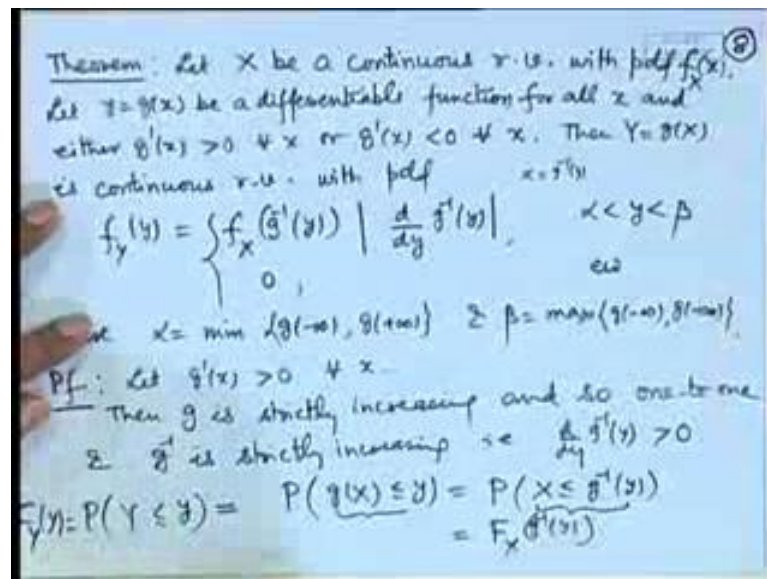 8
Theorem: Let X be a continuous r.v. with pdf f_X(x).
Let y = g(x) be a differentiable function for all x and
either g'(x) > 0 ∀ x or g'(x) < 0 ∀ x. Then Y = g(X)
is continuous r.v. with pdf x = g⁻¹(y)
f_Y(y) = { f_X(g⁻¹(y)) | d/dy g⁻¹(y) |, α < y < β
0, ew
α = min {g(-∞), g(+∞)} & β = max {g(-∞), g(+∞)}.
Pf: Let g'(x) > 0 ∀ x.
Then g is strictly increasing and so one-to-one
& g⁻¹ is strictly increasing ie d/dy g⁻¹(y) > 0
F_Y(y) = P(Y ≤ y) = P(g(X) ≤ y) = P(X ≤ g⁻¹(y))
= F_X(g⁻¹(y))